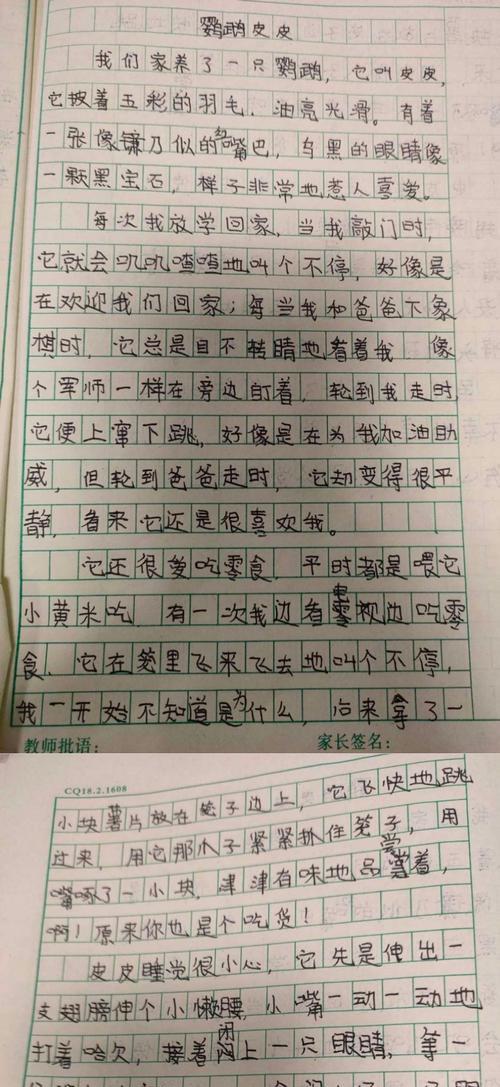 鹦鹉皮皮
我们家养了一只鹦鹉，它叫皮皮，
它披着五彩的羽毛，油亮光滑。有着
一张像镰刀似的嘴巴，乌黑的眼睛像
一颗黑宝石，样子非常地惹人喜爱。
每次我放学回家，当我敲门时，
它就会叽叽喳喳地叫个不停，好像是
在欢迎我们回家；每当我和爸爸下象
棋时，它总是目不转睛地看着我，像
个军师一样在旁边盯着，轮到我走时，
它便上窜下跳，好像是在为我加油助
威，但轮到爸爸走时，它却变得很平
静，看来它还是很喜欢我。
它还很爱吃零食，平时都是喂它
小黄米吃，有一次我边看电视边吃零
食，它在笼里飞来飞去地叫个不停，
我一开始不知道是为什么，后来拿了一
教师批语： 家长签名：
CQ18.2.1608
小块薯片放在笼子边上，它飞快地跳
过来，用它那爪子紧紧抓住笼子，用
嘴啄了一小块，津津有味地品尝着，
啊！原来你也是个吃货！
皮皮睡觉很小心，它先是伸出一
支翅膀伸个小懒腰，小嘴一动一动地
打着哈欠，接着闭上一只眼睛，等一